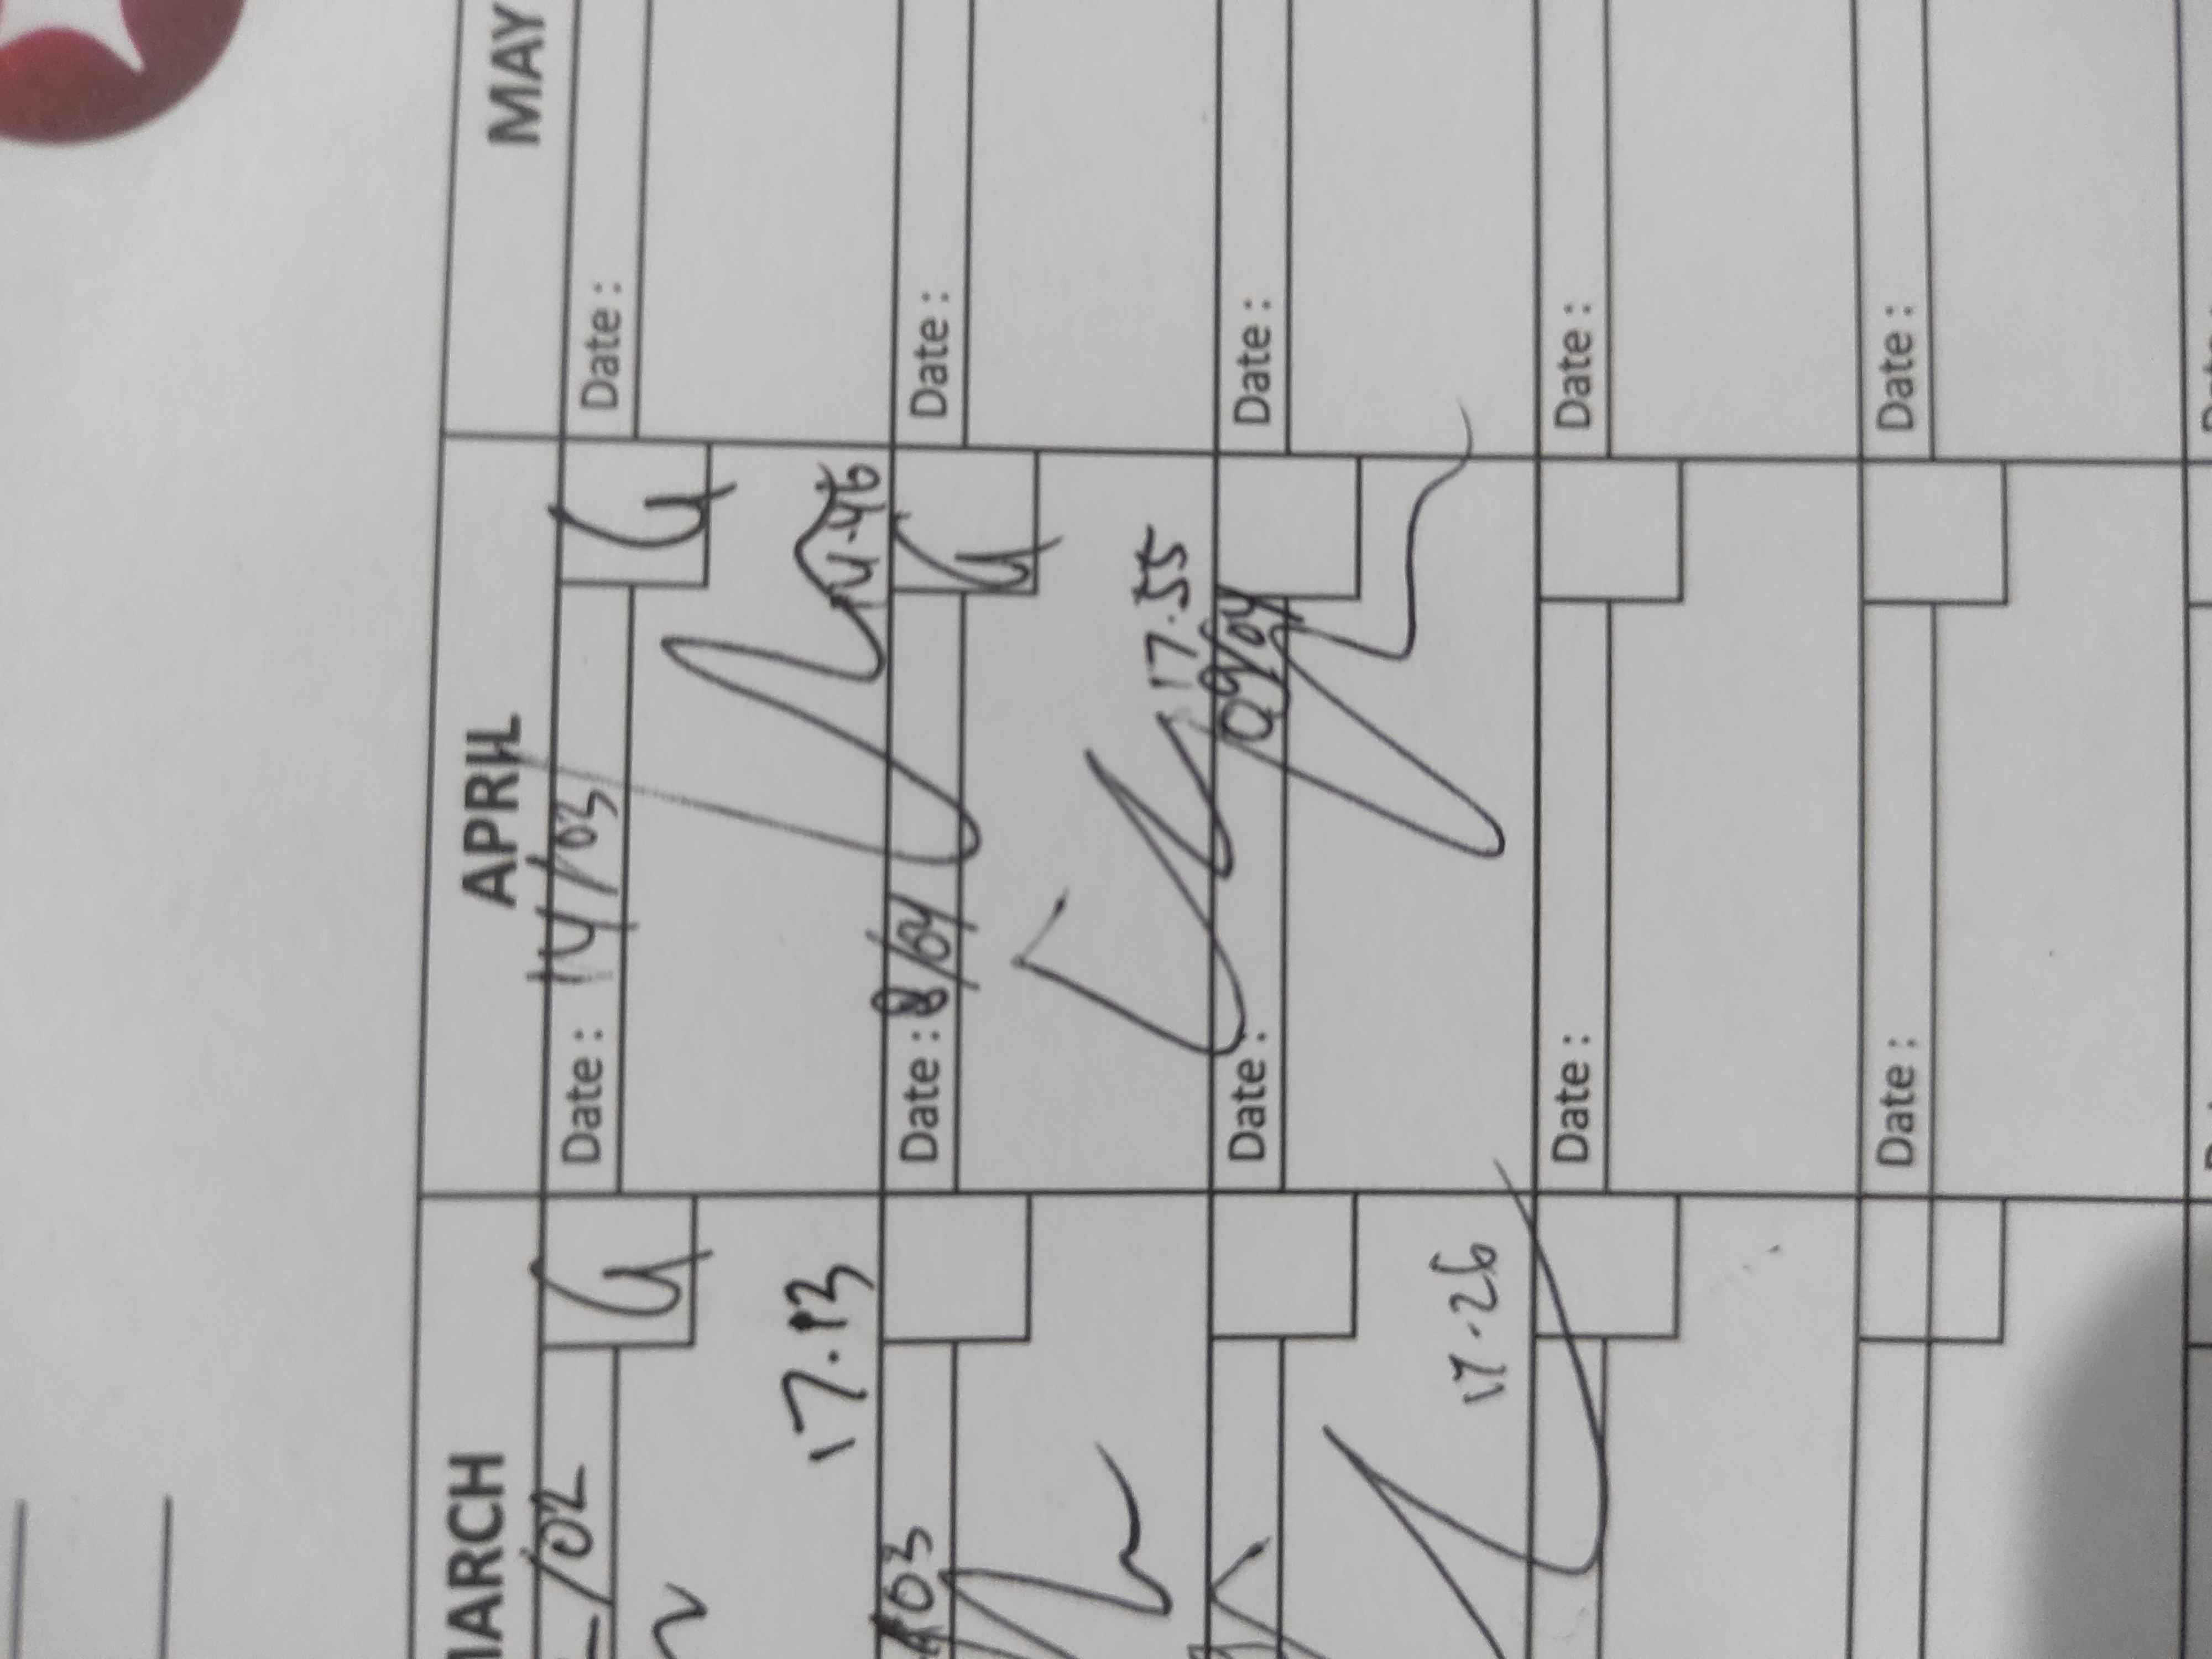 MARCH APRIL MAY
/02 Date : 14/03 Date :
17.13
03 Date : 8/04 Date :
17.55
Date : 09/04 Date :
17.26
Date : Date :
Date : Date :